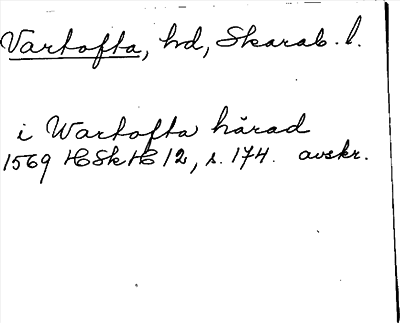 Vartofta, hd, Skarab. l.
i Wartofta härad
1569 HSkH 12, s. 174. avskr.